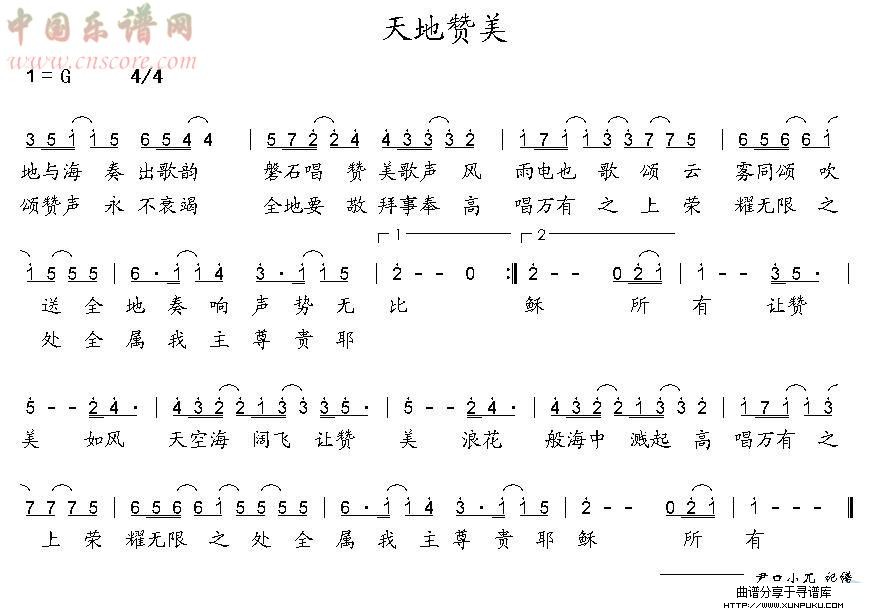 中国乐谱网
天地赞美
www.cnscore.com
1=G 4/4
3 5 1 1 5 6 5 4 4 | 5 7 2 2 4 4 3 3 3 2 | 1 7 1 1 3 3 7 7 5 | 6 5 6 6 1
地与海 奏 出歌韵 磐石唱 赞 美歌声 风 雨电也 歌 颂 云 雾同颂 吹
颂赞声 永 不衰竭 全地要 敬 拜事奉 高 唱万有 之 上 荣 耀无限 之
1 2
1 5 5 5 | 6 · 1 1 4 3 · 1 1 5 | 2 - - 0 :‖ 2 - - 0 2 1 | 1 - - 3 5 · |
送 全 地 奏 响 声 势 无 比 稣 所 有 让赞
处 全 属 我 主 尊 贵 耶
5 - - 2 4 · | 4 3 2 2 1 3 3 3 5 · | 5 - - 2 4 · | 4 3 2 2 1 3 3 3 2 | 1 7 1 1 3
美 如风 天空海 阔飞 让赞 美 浪花 般海中 溅起 高 唱万有 之
7 7 7 5 | 6 5 6 6 1 5 5 5 5 | 6 · 1 1 4 3 · 1 1 5 | 2 - - 0 2 1 | 1 - - ‖
上 荣 耀无限 之 处 全 属 我 主 尊 贵 耶 稣 所 有
尹口小兀 记谱
曲谱分享于寻谱库
http://www.XUNPUKU.COM